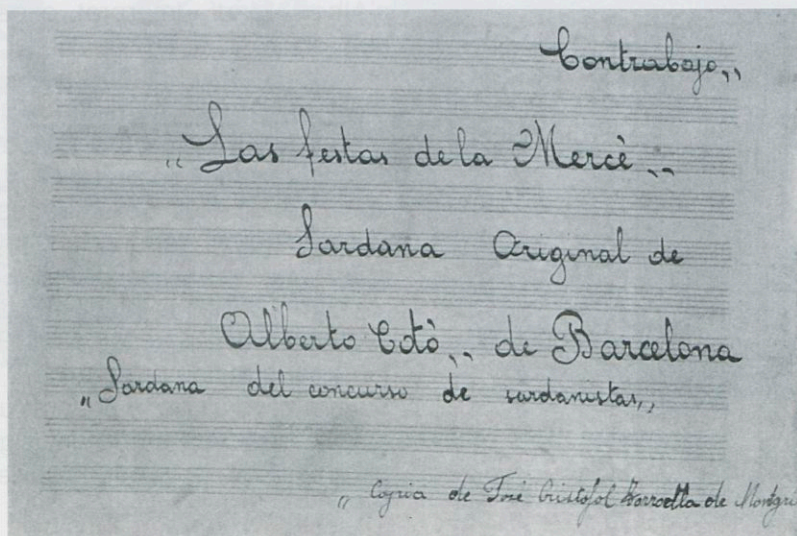 Contrabajo,,
„Las festas de la Mercè„
Sardana Original de
Alberto Cotó„ de Barcelona
„Sardana del concurso de sardanistas„
„ Copia de José Cristófol de Montgrí